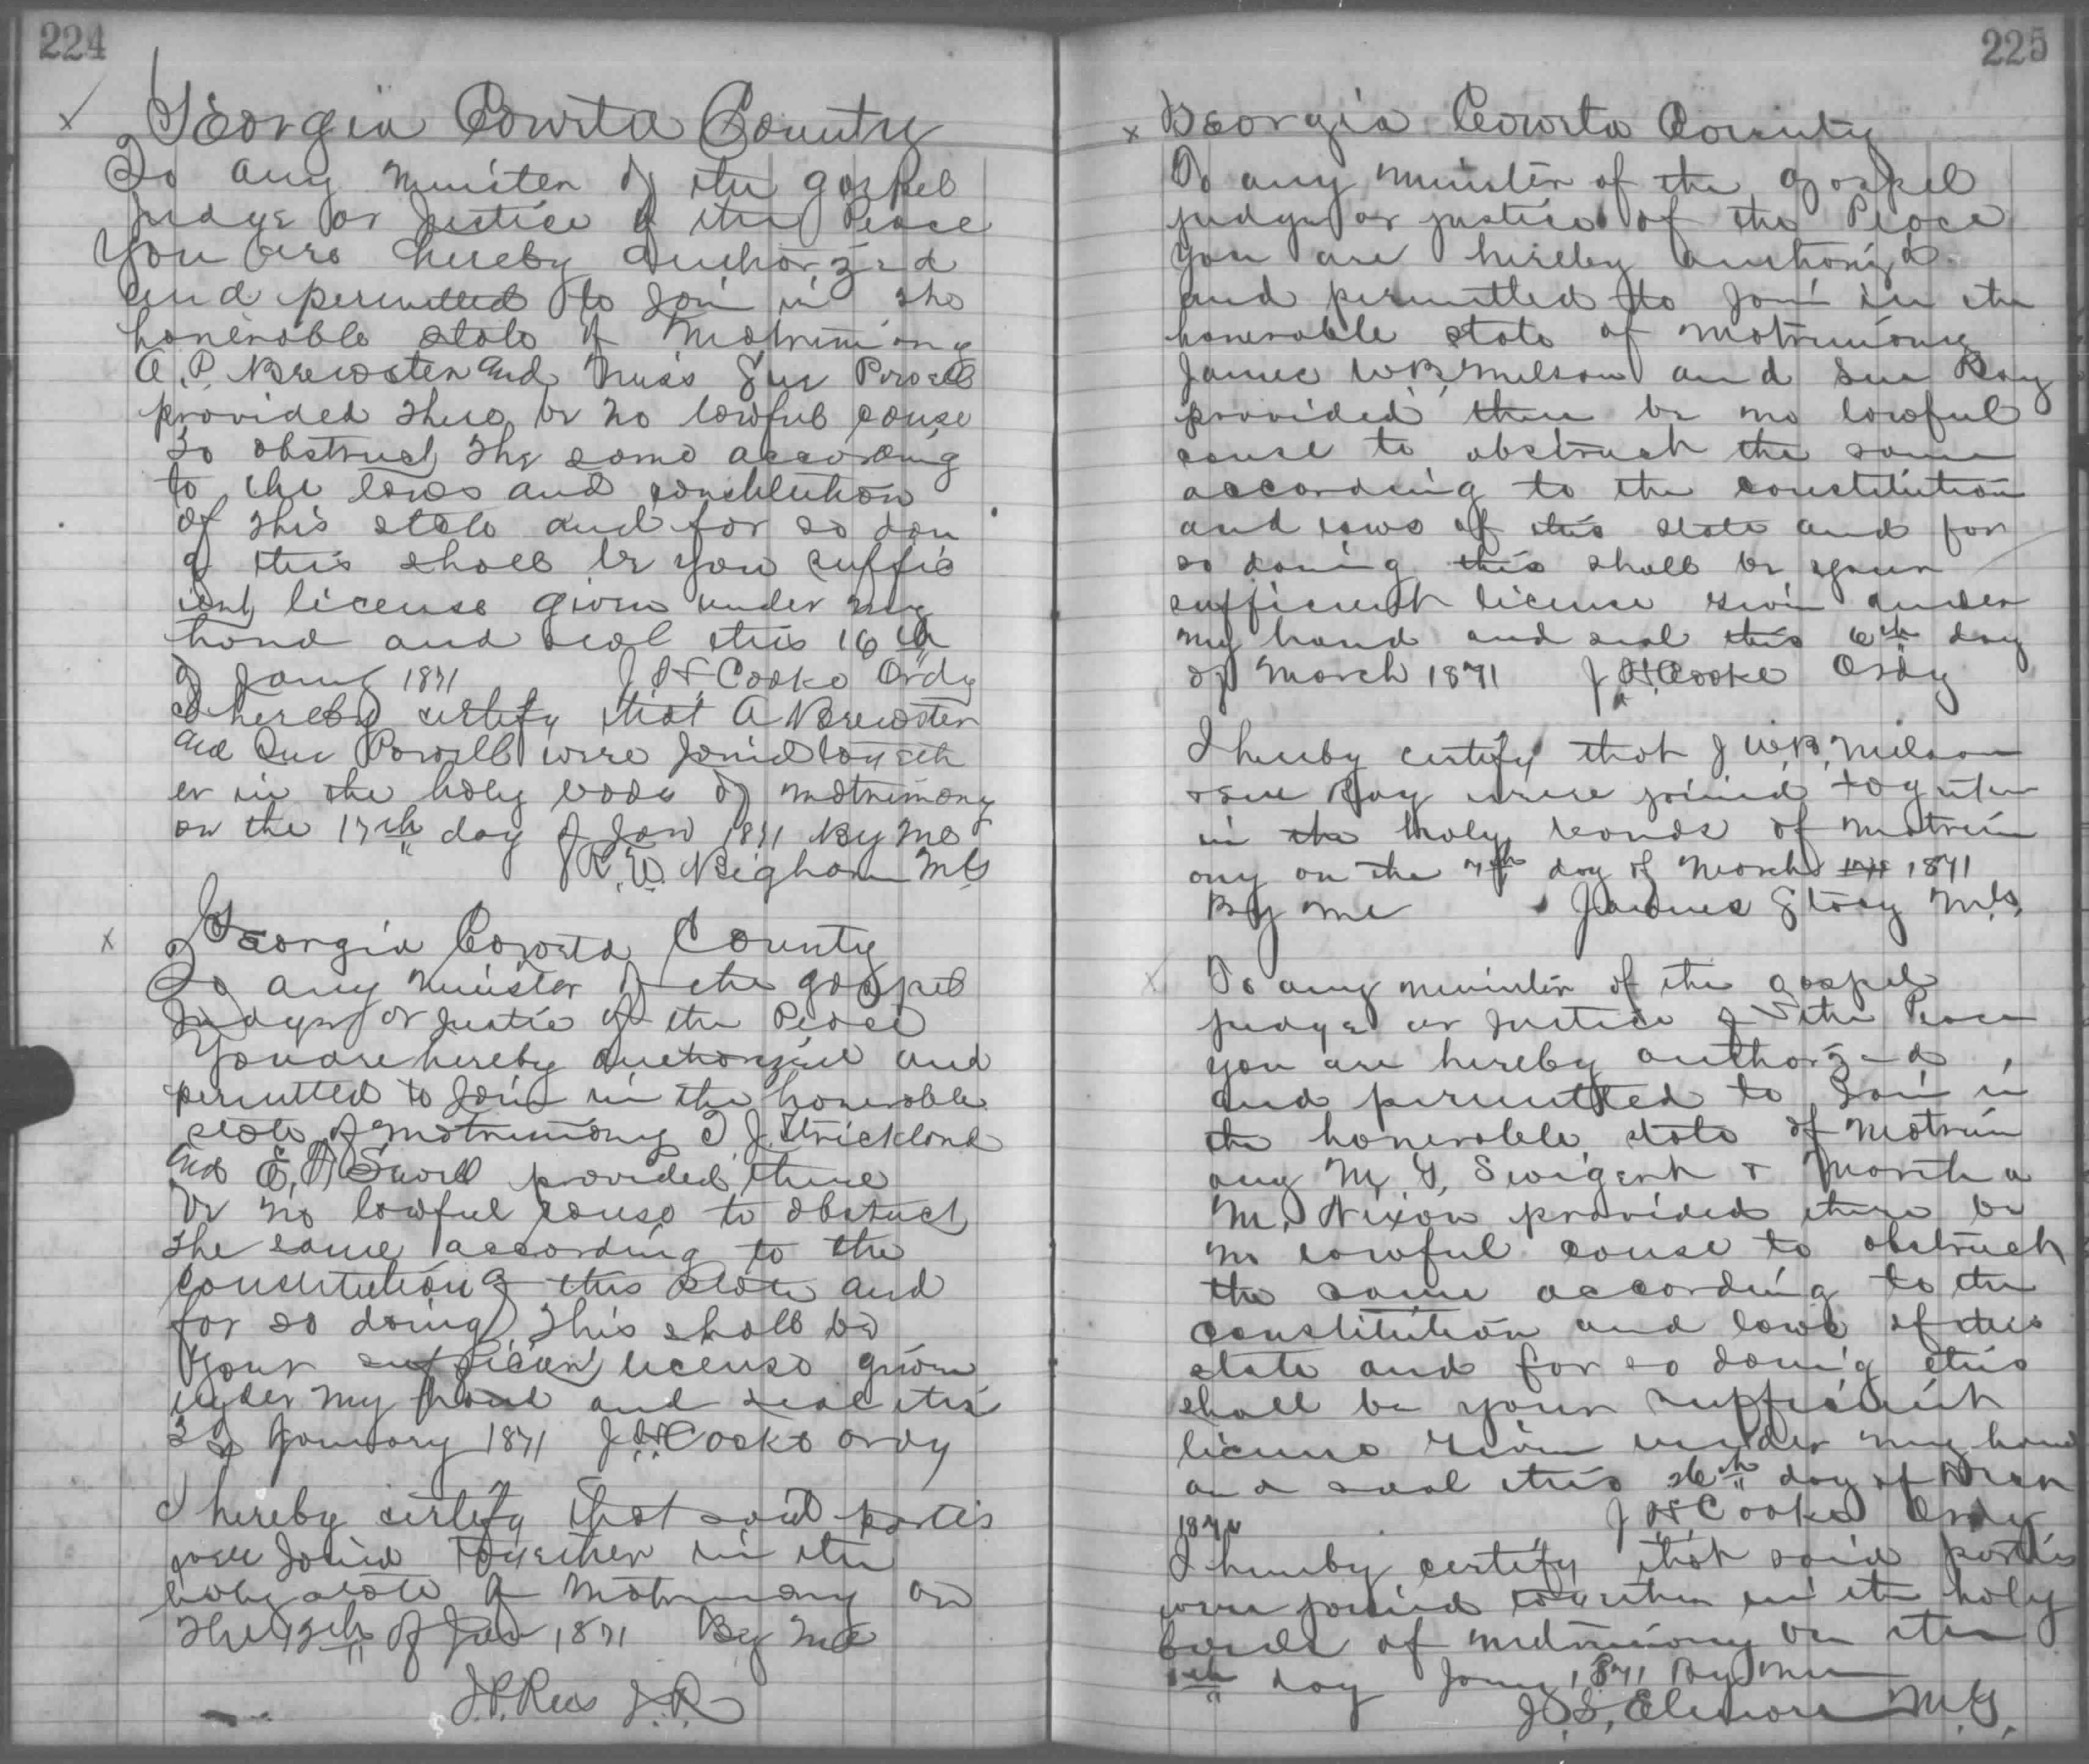 224
Georgia Coweta County
To any minister of the gospel
Judge or Justice of the Peace
You are hereby Authorized
and permitted to Join in the
honerable state of Matrimony
A. P. Brewster and Miss Sue Powell
provided there be no lawful cause
to obstruct the same according
to the laws and constitution
of this state and for so don
g this shall be you suffic
ient license given under my
hand and seal this 16th
of Jany 1871 J H Cooke Ordy
I hereby certify that A Brewster
and Sue Powell were Joined togeth
er in the holy bods of matrimony
on the 17th day of Jan 1871 By Me
R. W. Bigham MG
Georgia Coweta County
To any minister of the gospel
Judge or Justice of the Peace
You are hereby authorized and
permitted to Join in the honerable
state of matrimony T J Strickland
and E. A Sewell provided there
be no lawful cause to obstruct
the same according to the
constitution of this state and
for so doing this shall be
your sufficient license given
under my hand and seal this
January 1871 J H Cooke Ordy
I hereby certify that said parties
were Joined together in the
holy state of Matrimony on
the 12th of Jan 1871 By Me
J. P. Rees J. P.
225
Georgia Coweta County
To any minister of the gospel
judge or justice of the Peace
you are hereby authorizd
and permitted to Join in the
honerable state of Matrimony
James W B Melson and Sue Ray
provided there be no lawful
cause to obstruct the same
according to the constitution
and laws of this state and for
so doing this shall be your
sufficient license given under
my hand and seal this 6th day
of March 1871 J H Cooke Ordy
I hereby certify that J W. B. Melson
& Sue Ray were joined together
in the holy bonds of matrim
ony on the 7th day of March 1871
By me James Stacy M.G.
To any minister of the gospel
judge or Justice of the Peace
you are hereby authorzed
and permitted to Join in
the honerable state of Matrim
ony M. T. Swigert & Martha
M. Nixon provided there be
no lawful cause to obstruct
the same according to the
constitution and laws of this
state and for so doing this
shall be your sufficient
license given under my hand
and seal this 26th day of Decr
1870 J H Cooke Ordy
I hereby certify that said parties
were joined together in the holy
bonds of matrimony on the
day Jany 1871 By me
M. G.